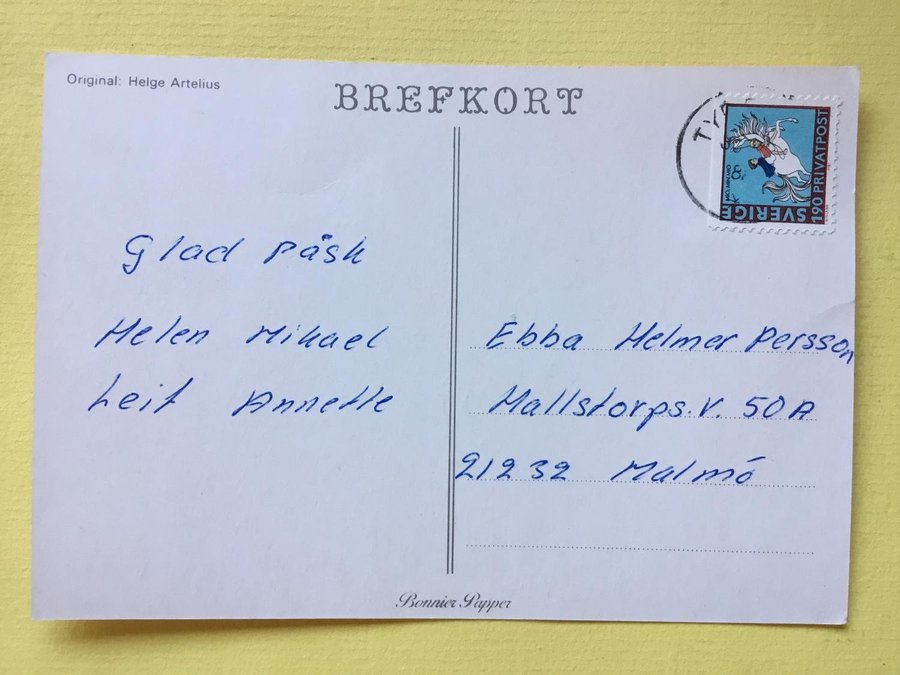 Original: Helge Artelius
BREFKORT
SVERIGE
190 PRIVATPOST
Glad Påsk
Helen Mikael
Leif Annette
Ebba Helmer Persson
Mallstorps.v. 50A
21232 Malmö
Bonnier Papper